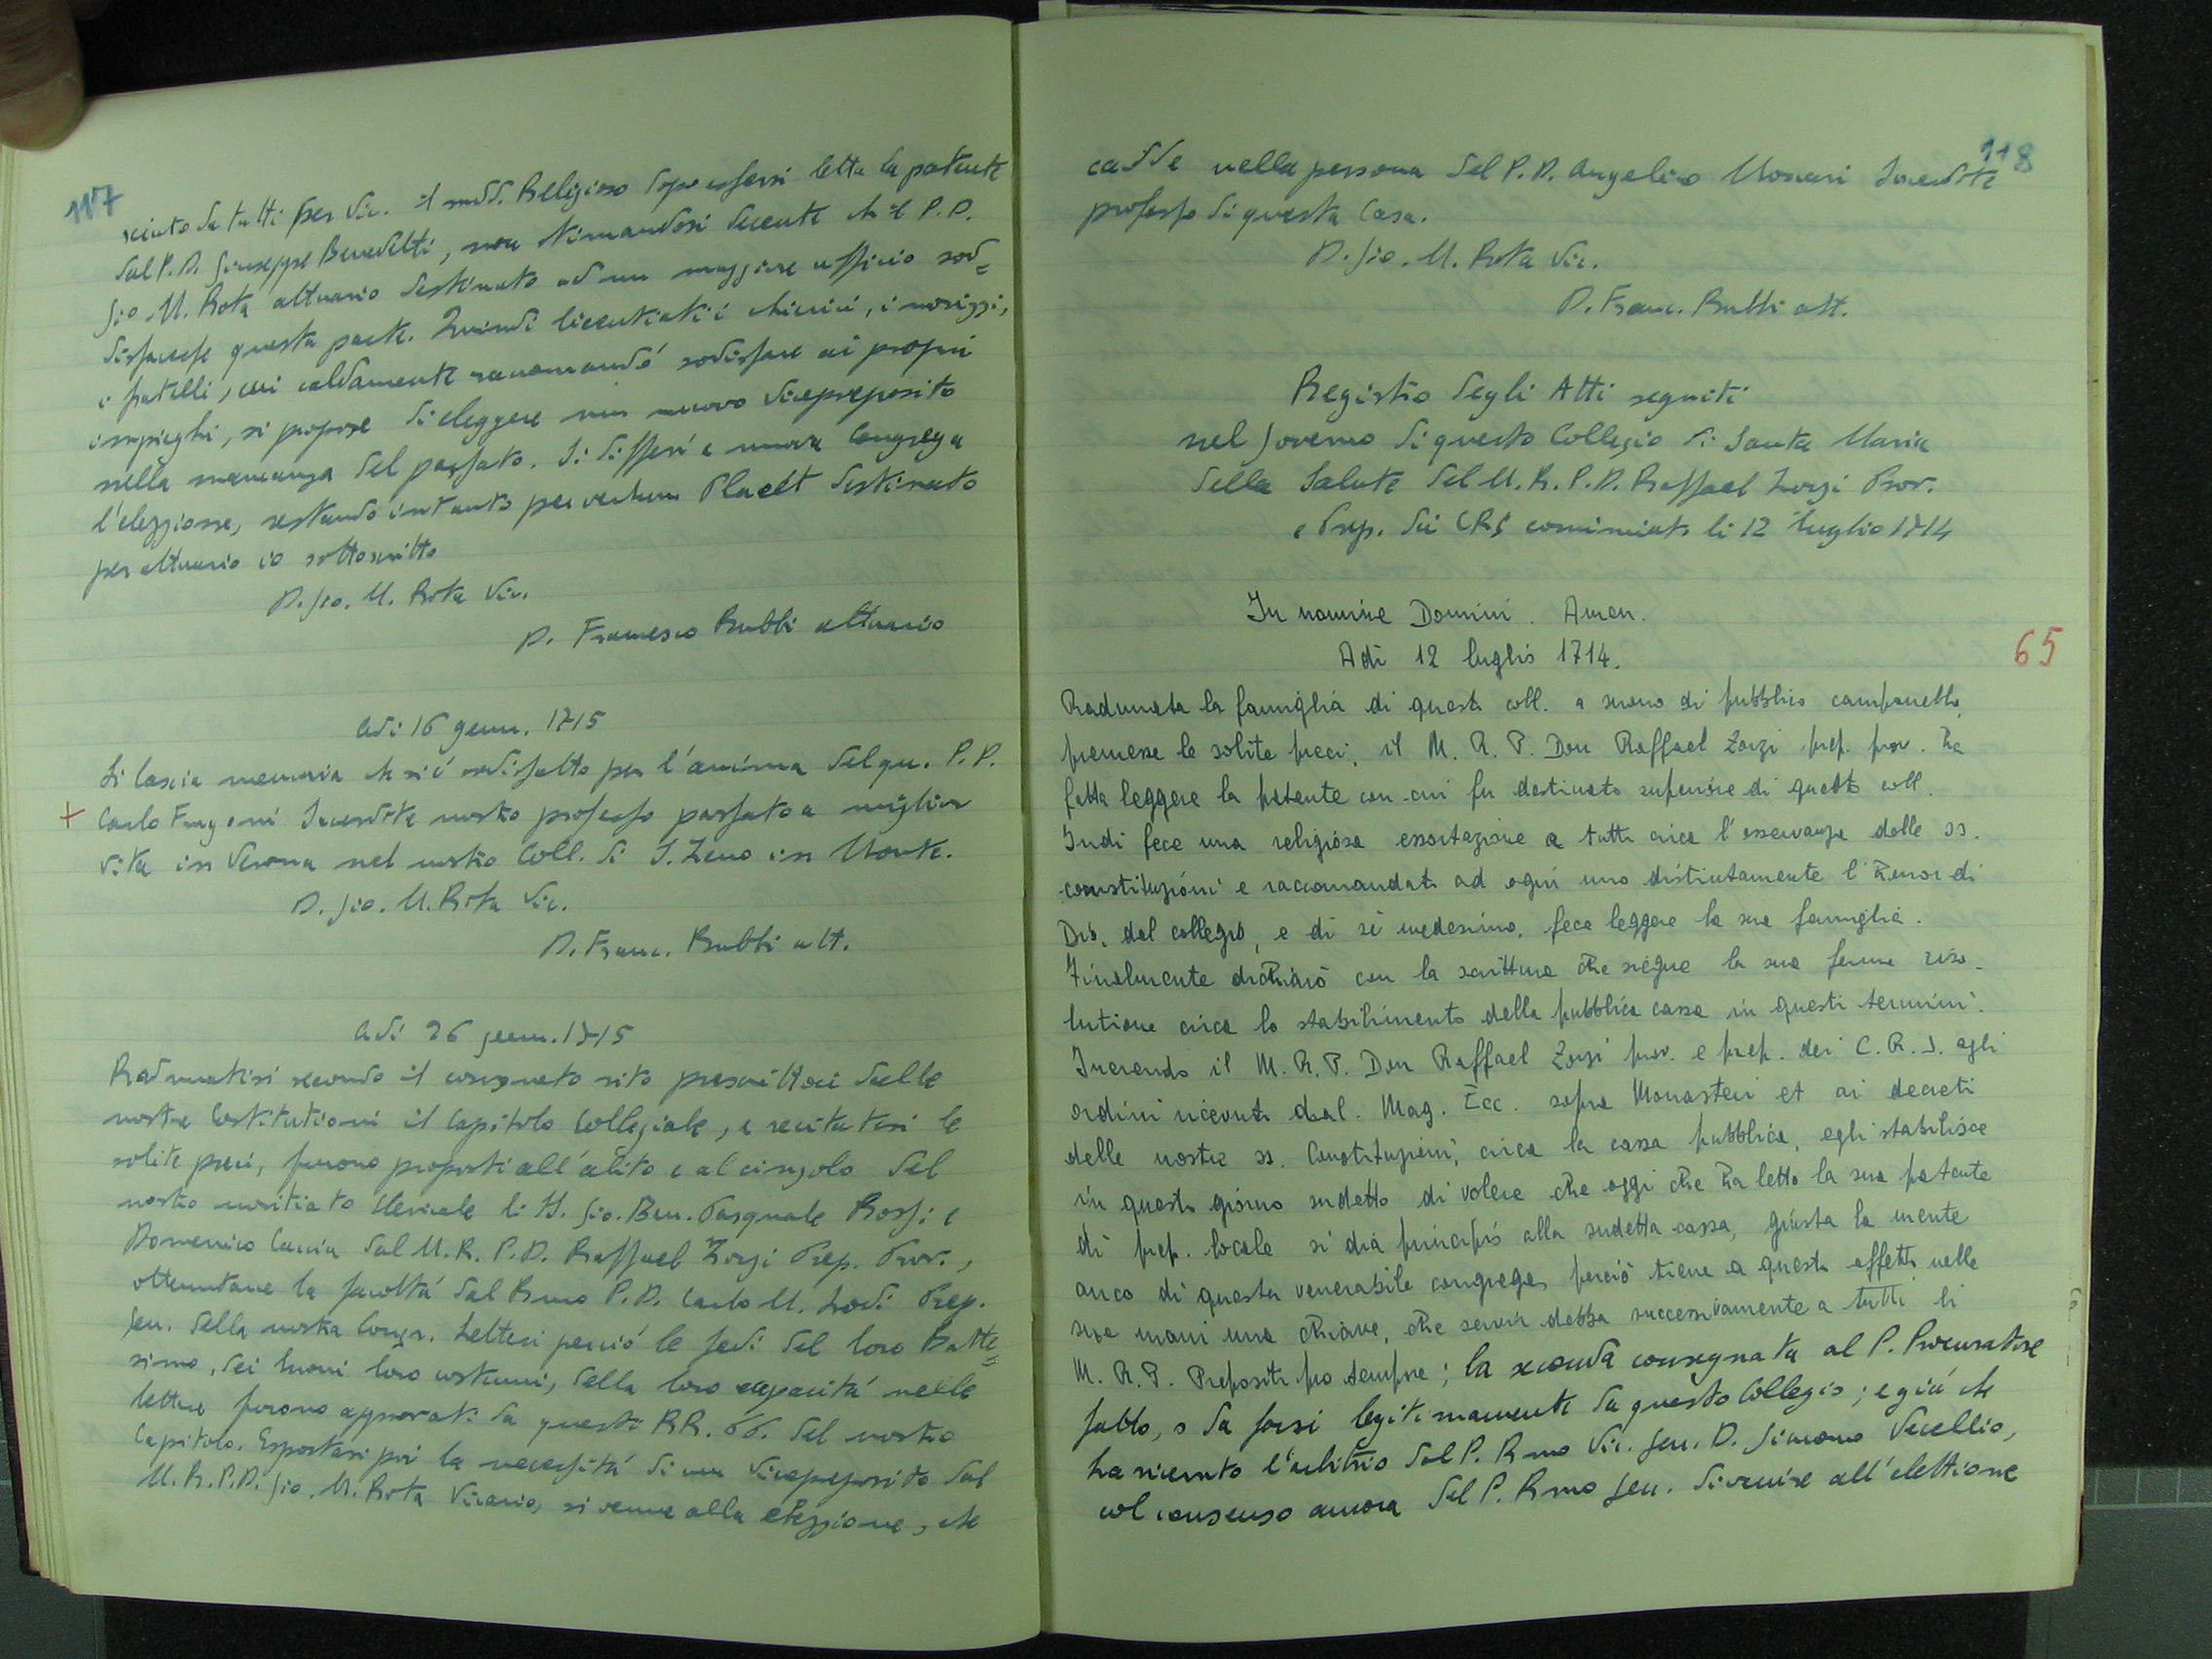 117
sciuto da tutti per Vic. il sudd. Religioso dopo essersi letta la patente
dal P. D. Giuseppe Benedetti, non stimandosi decente ch'il P. D.
Gio. M. Rota attuario destinato ad un maggiore ufficio sod=
disfacesse questa parte. Quindi licentiati i chierici, i novizzi,
i fratelli, cui caldamente racomandò sodisfare ai proprii
impieghi, si propose di eleggere un nuovo Vicepreposito
nella mancanza del passato. Si differì a nuova Congrega
l'elezzione, restando intanto per verbum Placet destinato
per attuario io sottoscritto
D. Gio. M. Rota Vic.
D. Francesco Rubbi attuario
adi 16 genn. 1715
Si lascia memoria ch si è sodisfatto per l'anima del qu. P. D.
+ Carlo Sacerdote nostro professo passato a miglior
vita in Verona nel nostro Coll. di S. Zeno in Monte.
D. Gio. M. Rota Vic.
D. Franc. Rubbi att.
adi 26 genn. 1715
Radunatisi secondo il consueto rito prescrittoci dalle
nostre Costitutioni il Capitolo Collegiale, e recitatesi le
solite preci, furono proposti all'abito e al cingolo del
nostro novitiato clericale li SS. Gio. Ben. Pasquale Rossi e
Domenico dal M. R. P. D. Raffael Zorzi Prep. Prov.,
ottenutane la facoltà dal Rmo P. D. Carlo M. Lodi Prep.
Gen. della nostra Congr. Lettesi perciò le fedi del loro Batte=
simo, dei buoni loro costumi, della loro capacità nelle
lettere furono approvati da questi RR. PP. del nostro
Capitolo. Espostasi poi la necessità di un Vicepreposito dal
M. R. P. D. Gio. M. Rota Vicario, si venne alla elezzione, che
118
cadde nella persona del P. D. Angelico Monari Sacerdote
professo di questa Casa.
D. Gio. M. Rota Vic.
D. Franc. Rubbi att.
Registro degli Atti seguiti
nel Governo di questo Collegio di Santa Maria
della Salute del M. R. P. D. Raffael Zorzi Prov.
e Prep. dei CRS cominciato li 12 luglio 1714
In nomine Domini. Amen.
Adì 12 luglio 1714.
65
Radunata la famiglia di questo coll. a suono di pubblico campanello,
premesse le solite preci, il M. R. P. Don Raffael Zorzi prep. prov. ha
fatta leggere la patente con cui fu destinato superiore di questo coll.
Indi fece una religiosa essortazione a tutti circa l'osservanza delle ss.
constituzioni e raccomandato ad ogni uno distintamente l'honor di
Dio, del collegio, e di sè medesimo, fece leggere la sua famiglia.
Finalmente dichiarò con la scrittura che siegue la sua ferma riso-
lutione circa lo stabilimento della pubblica cassa in questi termini.
Inerendo il M. R. P. Don Raffael Zorzi prov. e prep. dei C. R. S. agli
ordini ricevuti dal. Mag. Ecc. sopra Monasteri et ai decreti
delle nostre ss. Constituzioni, circa la cassa pubblica, egli stabilisce
in questo giorno sudetto di volere che oggi che ha letto la sua patente
di prep. locale si dia principio alla sudetta cassa, giusta la mente
anco di questa venerabile congrega, perciò tiene a questo effetto nelle
sue mani una chiave, che servir debba successivamente a tutti li
M. R. P. Prepositi pro tempre; la seconda consegnata al P. Procuratore
fatto, o da farsi legitimamente da questo Collegio; e già ch
ha ricevuto l'arbitrio dal P. Rmo Vic. Gen. D. Simone Vecellio,
col consenso ancora del P. Rmo Gen. di venire all'elettione